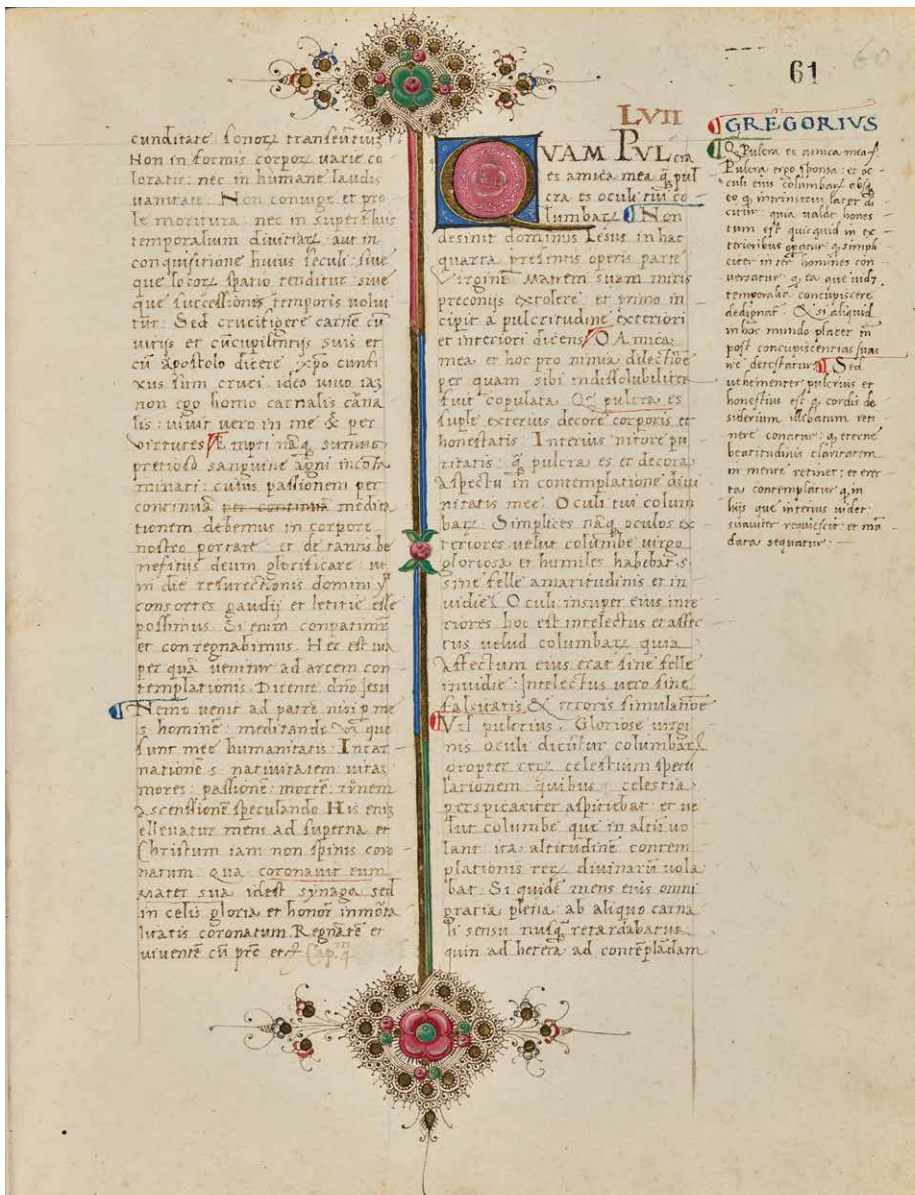 61
60
cunditate sonoꝝ transeuntiuꝫ
Non in formis corpoꝝ uarie co
loratis: nec in humane laudis
uanitate. Non coniuge et pro
le moritura: nec in superfluis
temporalium diuitiaꝝ aut in
conquisitione huius seculi: siue
que locoꝝ spatio tenditur siue
que successionis temporis volui
tur. Sed crucifigere carnē cū
uitijs et cūcupilentijs suis et
cū apostolo dicere xp̄o confi
xus sum cruci. ideo uiuo iaꝫ
non ego homo carnalis
lis: uiuit uero in me & per
virtutes Empti nāqꝫ sumus
pretioso sanguine agni incōta
minati: cuius passionem per
continuā per continuā medita
tionem debemus in corpore
nostro portare: et de tantis be
nefitijs deum glorificare: ut
in die resurectionis domini
consortes gaudij et letitie esse
possimus. Si enim conpatimur
et conregnabimus. Hec est uia
per quā uenitur ad arcem con
templationis. Dicente dn̄o Jesu
Nemo uenit ad patrē nisi p me
s hominē: meditando que
sunt mee humanitatis. Incar
nationē s natiuitatem uitaꝫ
mores: passionē: mortē:
ascensionē speculando His eniꝫ
elleuatur mens ad superna et
Christum iam non spinis coro
natum: qua coronauit eum
Mater sua idest synaga sed
in celis gloria et honor inmōta
litatis coronatum. Regnātē et
uiuentē cū prē et Cap.
LVII
QVAM PVLcra
es amica mea qꝫ pul
cra es oculi tui co
lumbaꝝ Non
desinit dominus Iesus in hac
quarta presentis operis parte
Virginē Matrem suam miris
preconijs extolere et primo in
cipit a pulcritudine exteriori
et interiori dicens O Amica
mea et hoc pro nimia dilectiōe
per quam sibi indissolubiliter
fuit copulata pulcra es
suple exterius decore corporis et
honestatis. Interius nitore pu
ritatis: pulcra es et decora
Aspectu in contemplatione diui
nitatis mee. Oculi tui colum
baꝝ. Simplices nāqꝫ oculos ex
teriores uelut columbe uirgo
gloriosa et humiles habebat s
sine felle amaritudinis et in
uidie. Oculi insuper eius inte
riores hoc est intelectus et affec
tus uelud columbaꝝ quia
Affectum eius erat sine felle
inuidie: Intelectus uero sine
falsitatis & erroris simulatiōe
Vel pulcrius. Gloriose uirgi
nis oculi dicūtur columbaꝝ
propter reꝝ celestium specu
lationem quibus celestia
perspicaciter aspitiebat: et ue
lut columbe que in altū uo
lant ita altitudinē contem
plationis reꝝ diuinarū uola
bat. Si quidē mens eius omni
gratia plena ab aliquo carna
li sensu nusqꝫ retardabatur
quin ad hetera ad contēpladam
GREGORIVS
Pulcra es amica mea
Pulcra ergo sponsa: et oc
culi eius columbaꝝ absqꝫ
eo qꝫ intrinsecus latet di
citur: quia ualde hones
tum est quicquid in ex
terioribus opatur qꝫ simpli
citer inter homines con
uersatur: qꝫ ea que uidꝫ
temporalia concupiscere
dedignat. Et si aliquid
in hoc mundo placet
post concupiscentias suas
detestatur Sed
uehementer pulcrius et
honestius est qꝫ cordis de
siderium illibatum reti
nere conatur: qꝫ eterne
beatitudinis claritatem
in mente retinet: et erec
ta contemplatur qꝫ in
hijs que interius uidet
suauiter requiescit: et mā
data sequatur: